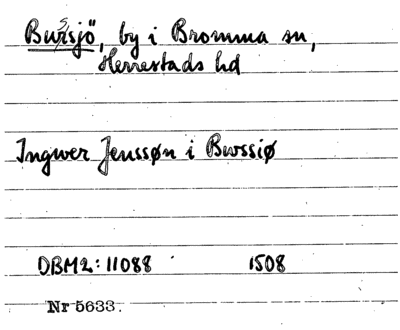 Bussjö, by i Bromma sn,
Herrestads hd
Ingwer Jenssøn i Bwssiø
DBM2:11088 1508
Nr 5633.